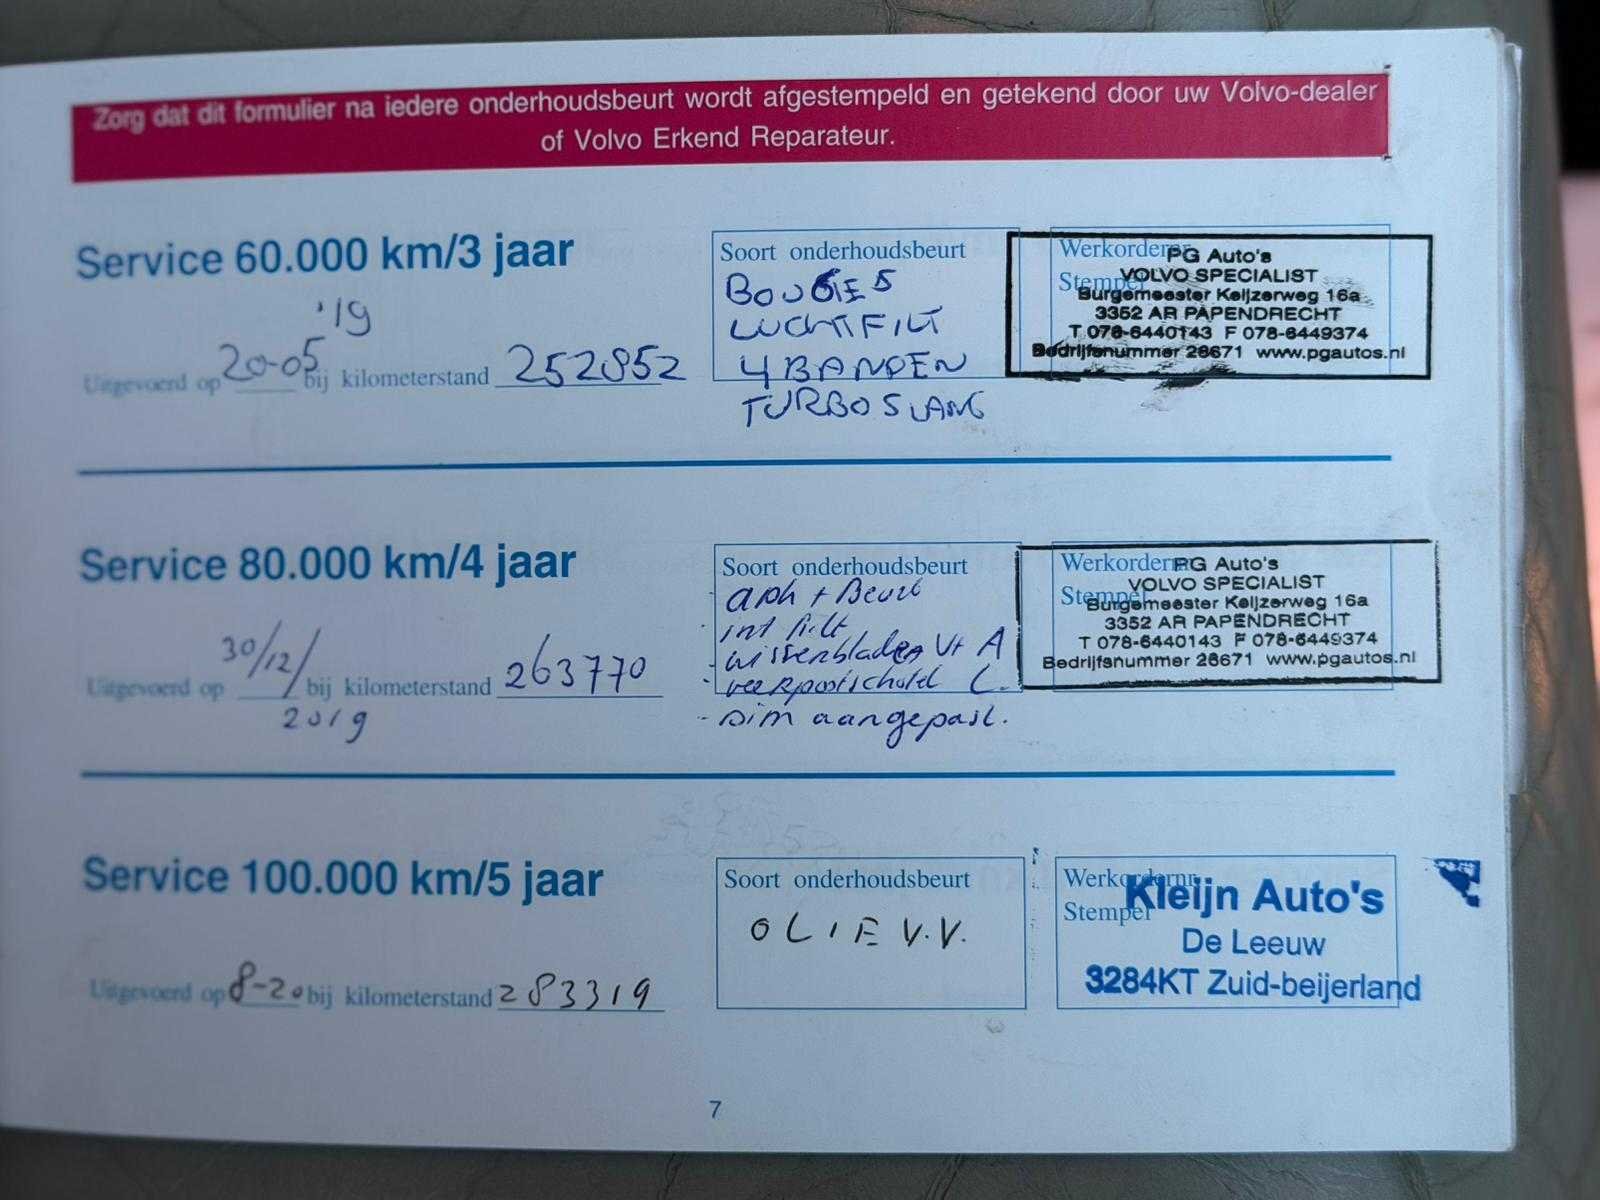 Zorg dat dit formulier na iedere onderhoudsbeurt wordt afgestempeld en getekend door uw Volvo-dealer
of Volvo Erkend Reparateur.
Service 60.000 km/3 jaar
'19
Uitgevoerd op 20-05 bij kilometerstand 252852
Soort onderhoudsbeurt
BOUGIES
LUCHTFILT
4 BANDEN
TURBOSLANG
Werkordernr
Stempel
PG Auto's
VOLVO SPECIALIST
Burgemeester Keijzerweg 16a
3352 AR PAPENDRECHT
T 078-6440143 F 078-6449374
Bedrijfsnummer 28671 www.pgautos.nl
Service 80.000 km/4 jaar
Uitgevoerd op 30/12/ bij kilometerstand 263770
2019
Soort onderhoudsbeurt
apk + Beurt
- int filt
- wisserbladen V+A
- veerpootschotel L.
- Sim aangepast.
Werkordernr
Stempel
PG Auto's
VOLVO SPECIALIST
Burgemeester Keijzerweg 16a
3352 AR PAPENDRECHT
T 078-6440143 F 078-6449374
Bedrijfsnummer 28671 www.pgautos.nl
Service 100.000 km/5 jaar
Uitgevoerd op 8-20 bij kilometerstand 283319
Soort onderhoudsbeurt
OLIE V.V.
Werkordernr.
Stempel
Kleijn Auto's
De Leeuw
3284KT Zuid-beijerland
7